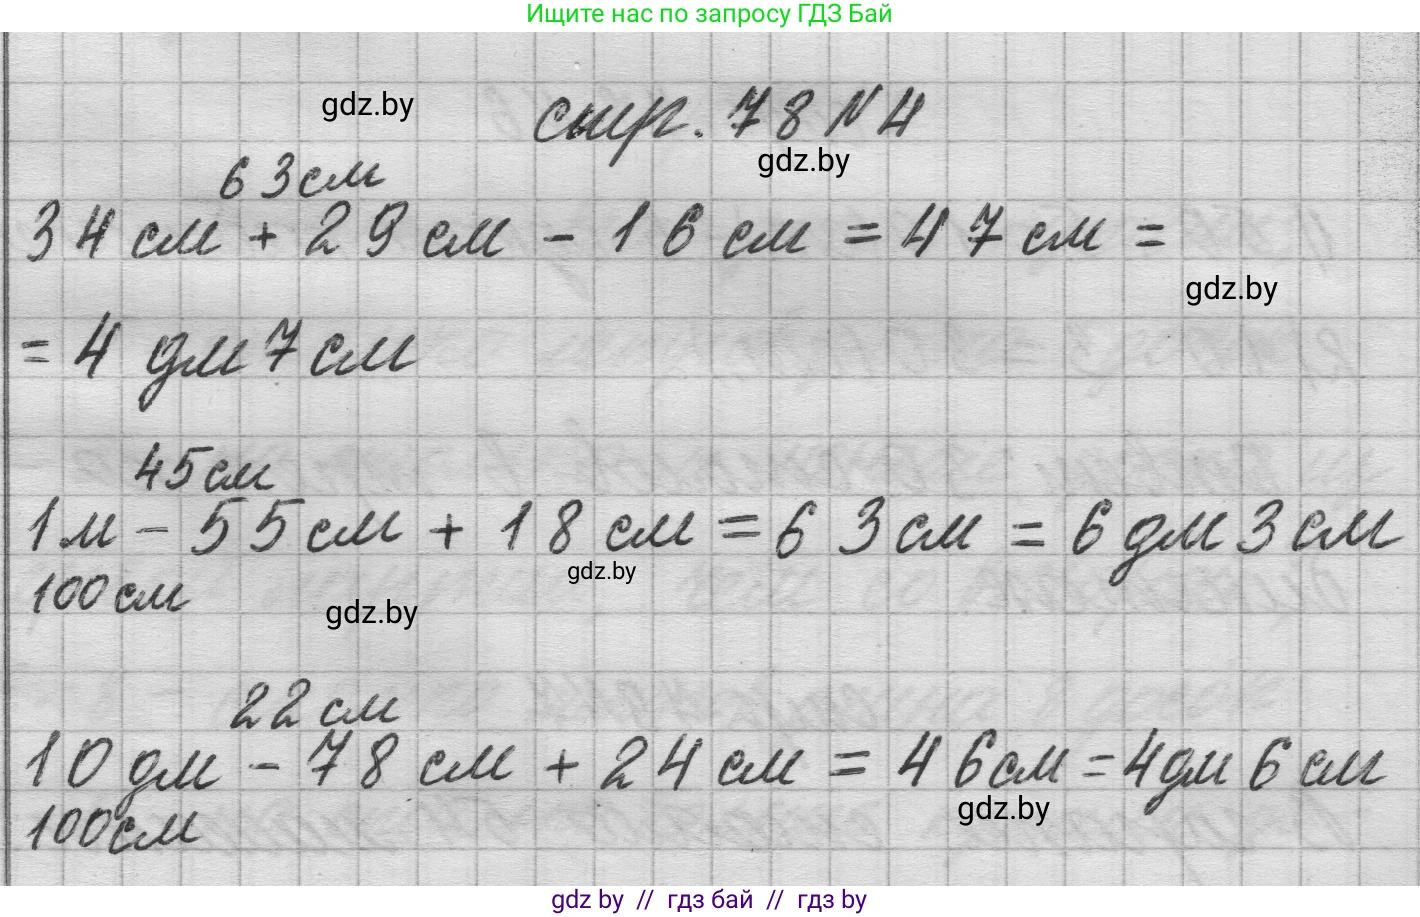 Ищите нас по запросу ГДЗ Бай
gdz.by
стр. 78 №4
gdz.by
63см
34 см + 29 см - 16 см = 47 см =
gdz.by
= 4 дм 7 см
45 см
1м - 55 см + 18 см = 63 см = 6 дм 3 см
100 см
gdz.by
gdz.by
22 см
10 дм - 78 см + 24 см = 46 см = 4 дм 6 см
100см
gdz.by
gdz by // гдз бай // гдз by